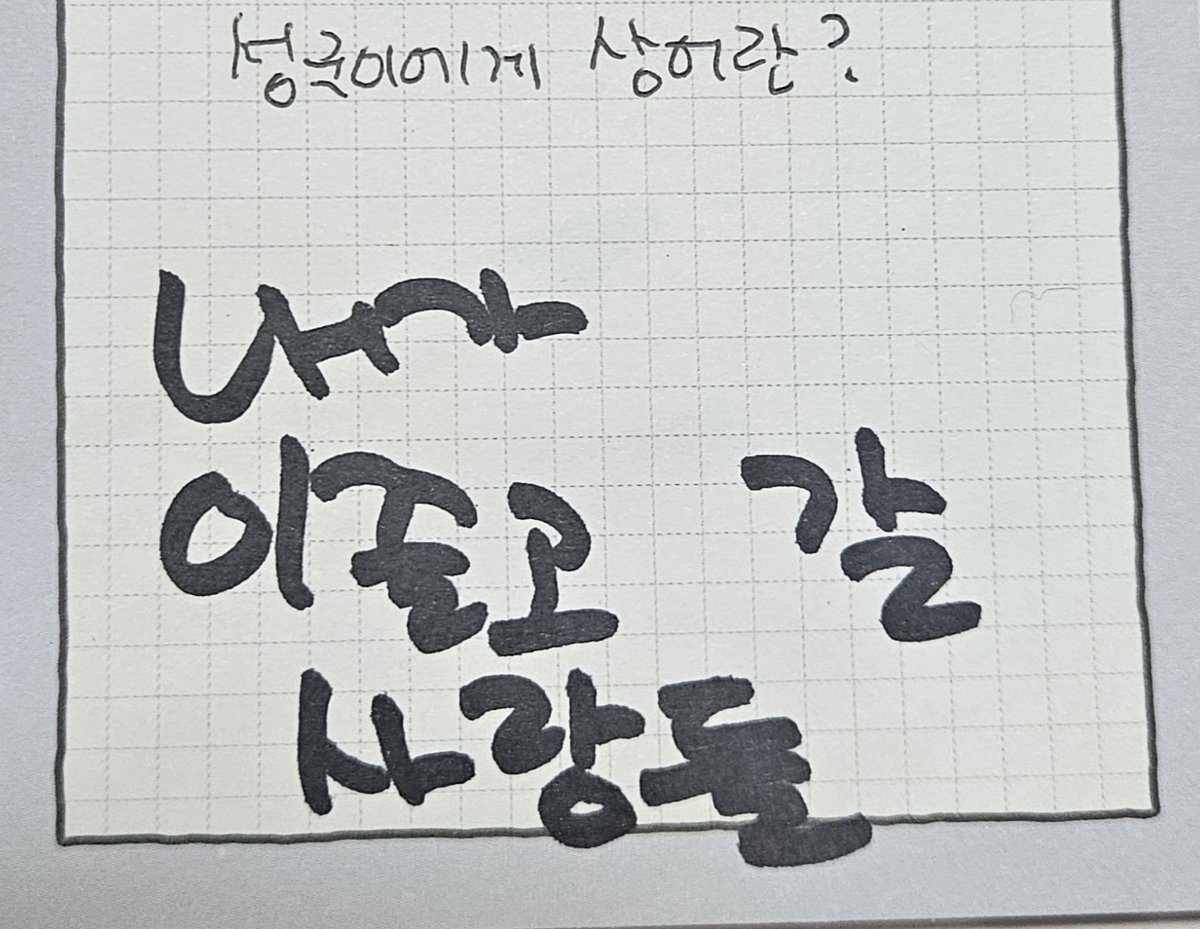 성국이에게 상어란?
내가
이끌고 갈
사랑들